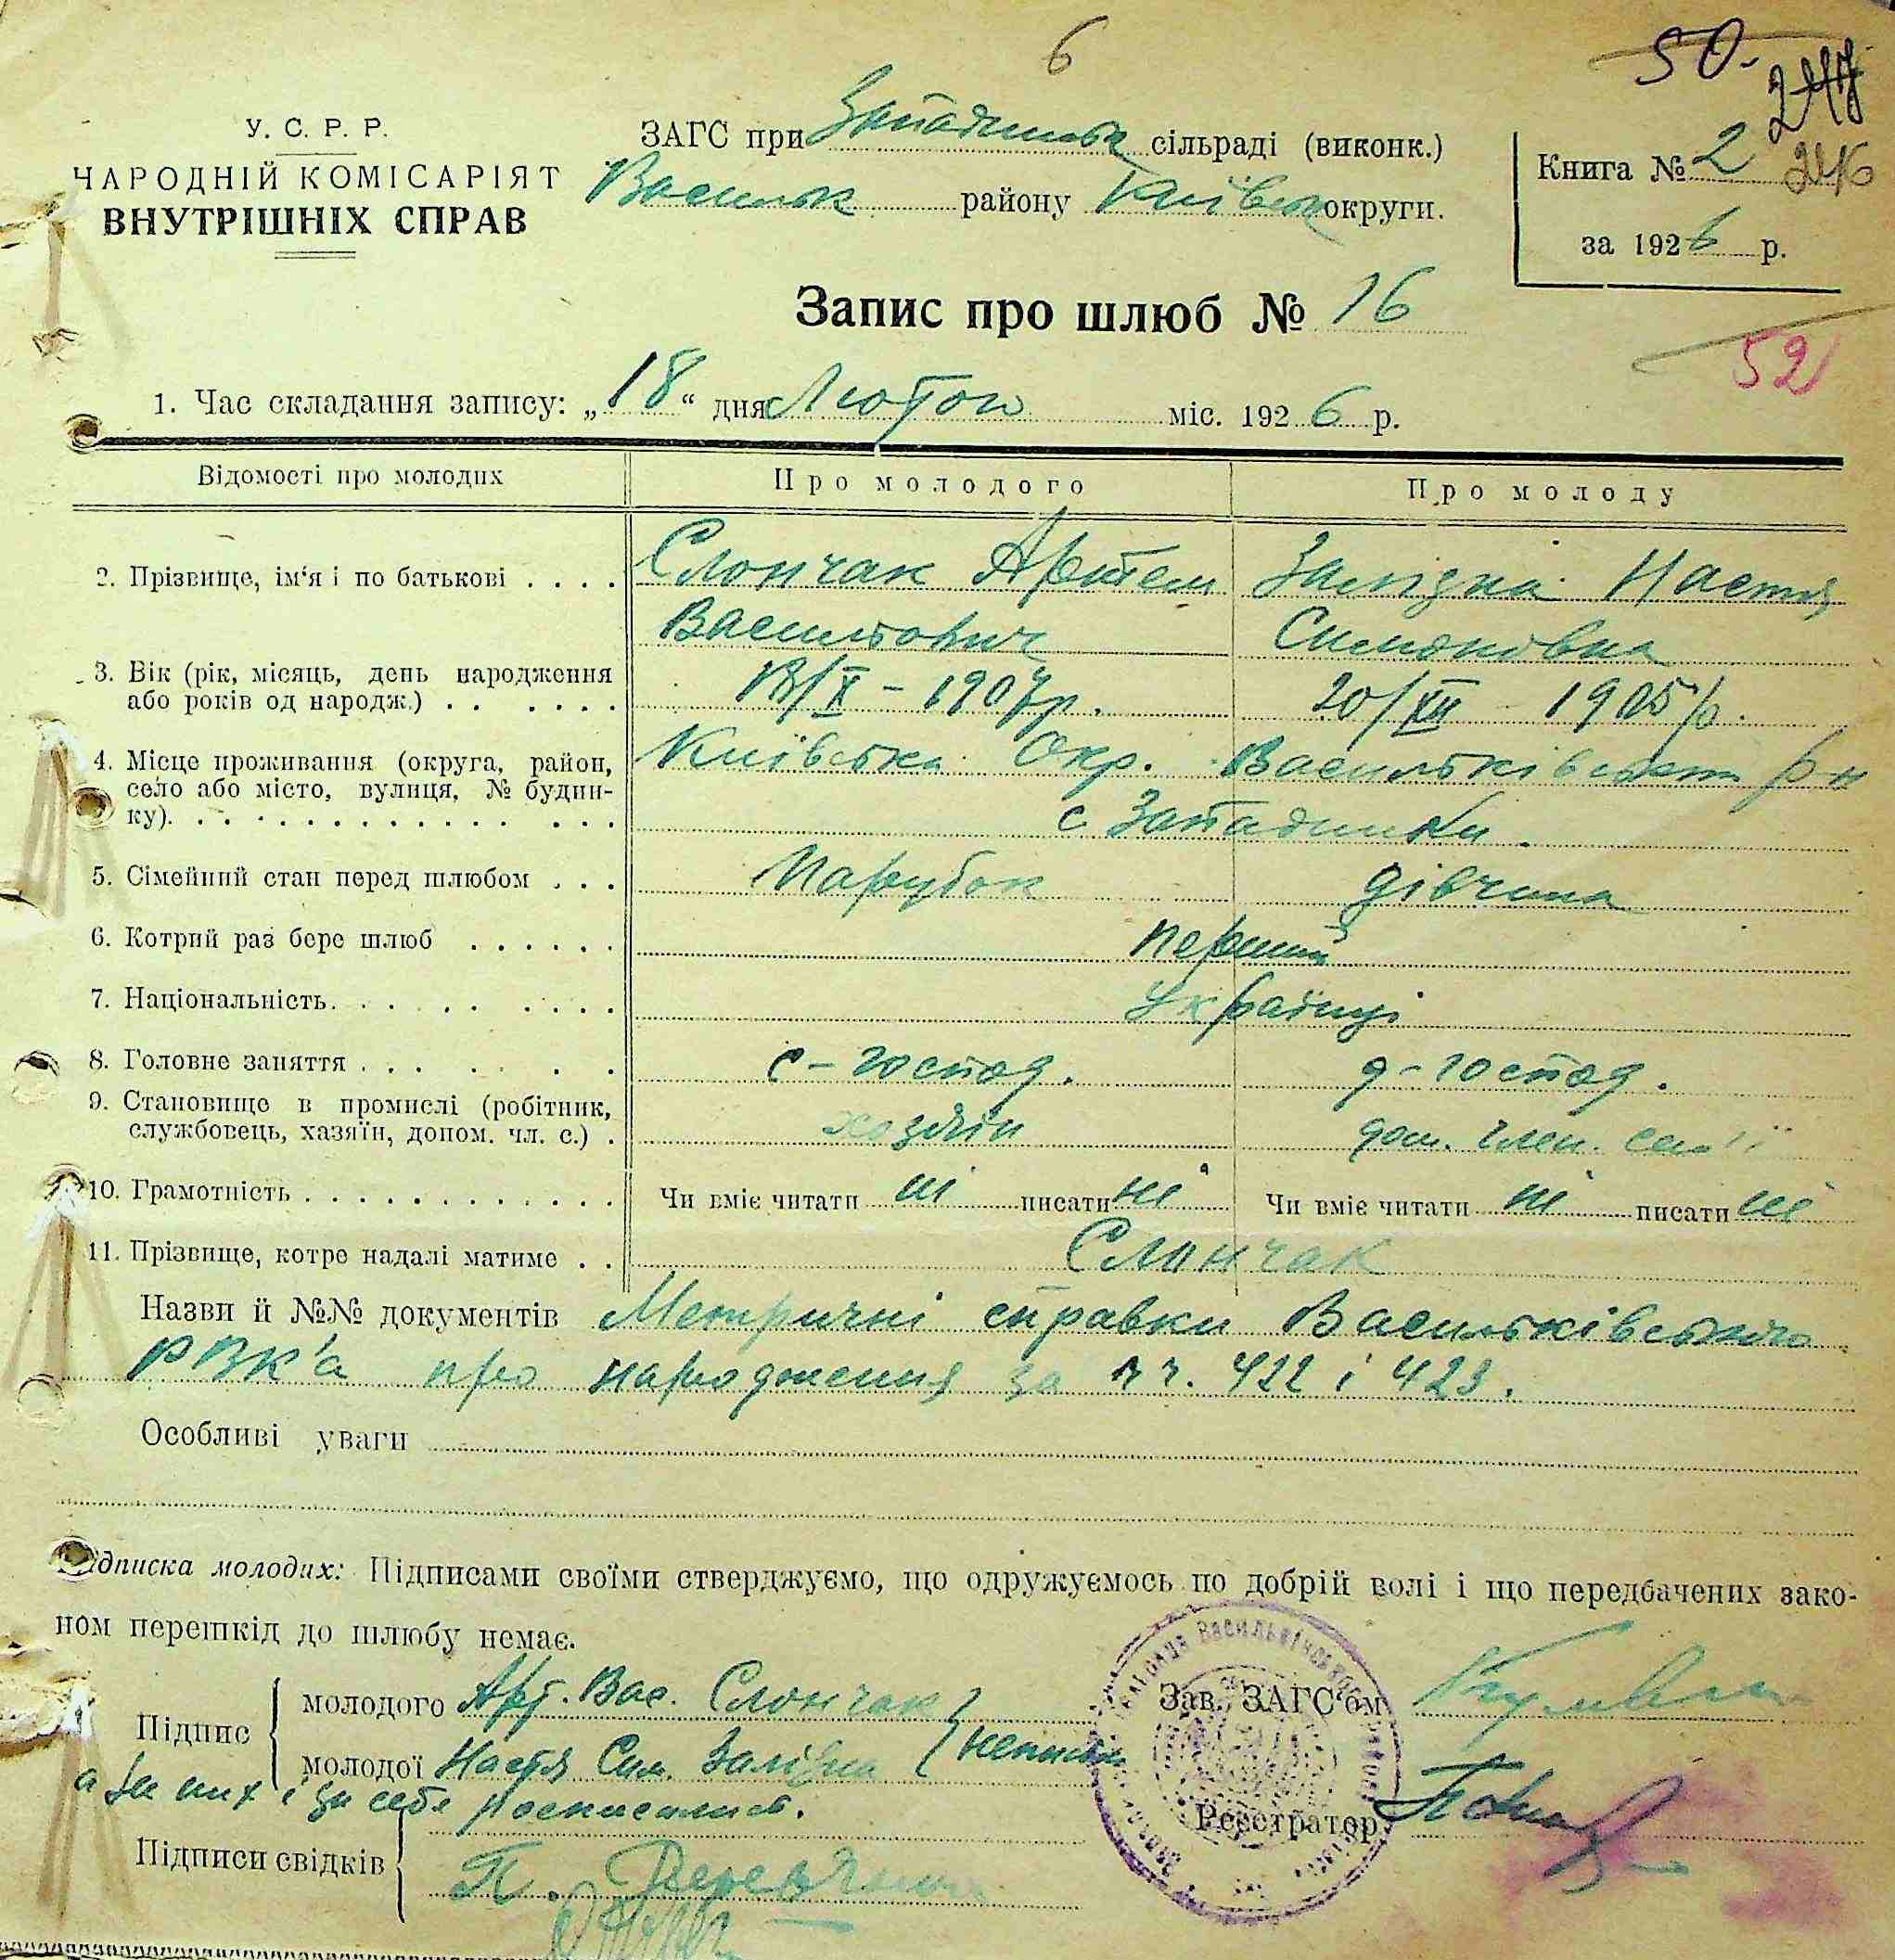 6
50.
247
246
У. С. Р. Р.
НАРОДНІЙ КОМІСАРІЯТ
ВНУТРІШНІХ СПРАВ
ЗАГС при Западинськ сільраді (виконк.)
Васильк району Київськ округи.
Книга № 2
за 1926 р.
Запис про шлюб № 16
52
1. Час складання запису: „18“ дня Лютого міс. 1926 р.
Відомості про молодих Про молодого Про молоду
2. Прізвище, ім‘я і по батькові . . . . Слончак Артем Залізна Настя
Васильович Симоновна
3. Вік (рік, місяць, день народження
або років од народж.) . . . . . . 18/X – 1907р. 20/XII 1905р.
4. Місце проживання (округа, район, Київська Окр. Васильківський р-н
село або місто, вулиця, № будин-
ку). с Западинка.
5. Сімейний стан перед шлюбом . . . Парубок дівчина
6. Котрий раз бере шлюб . . . . . . перший
7. Національність. Українці
8. Головне заняття . . . с – господ. д – господ.
9. Становище в промислі (робітник,
службовець, хазяїн, допом. чл. с.) . хозяїн дом. член. сем'ї
10. Грамотність . . . Чи вміє читати ні писати ні Чи вміє читати ні писати ні
11. Прізвище, котре надалі матиме . . Слончак
Назви й №№ документів Метричні справки Васильківського
РВК'а про народження за чч. 422 і 423.
Особливі уваги
Підписка молодих: Підписами своїми стверджуємо, що одружуємось по добрій волі і що передбачених зако-
ном перешкід до шлюбу немає.
Підпис молодого Арт. Вас. Слончак
молодої Настя Сим. Залізна неписьм
а за них і за себе росписались.
Підписи свідків
П.
Зав. ЗАГС‘ом
Реєстратор